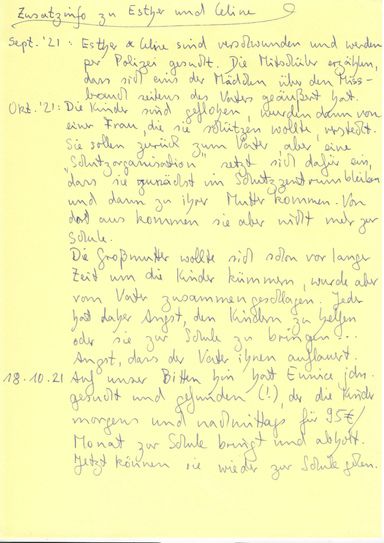 Zusatzinfo zu Esther und Celine
Sept. '21: Esther & Celine sind verschwunden und werden
per Polizei gesucht. Die Mitschüler erzählen,
dass sich eins der Mädchen über den Miss-
brauch seitens des Vaters geäußert hat.
Okt. '21: Die Kinder sind geflohen, wurden dann von
einer Frau, die sie schützen wollte, versteckt.
Sie sollen zurück zum Vater, aber eine
"Schutzorganisation" setzt sich dafür ein,
dass sie zunächst im Schutzzentrum bleiben
und dann zu ihrer Mutter kommen. Von
dort aus kommen sie aber nicht mehr zur
Schule.
Die Großmutter wollte sich schon vor langer
Zeit um die Kinder kümmern, wurde aber
vom Vater zusammengeschlagen. Jeder
hat daher Angst, den Kindern zu helfen
oder sie zur Schule zu bringen...
Angst, dass der Vater ihnen auflauert.
18.10.21 Auf unser Bitten hin hat Eunice jdn.
gesucht und gefunden (!), der die Kinder
morgens und nachmittags für 95€/
Monat zur Schule bringt und abholt.
Jetzt können sie wieder zur Schule gehen.